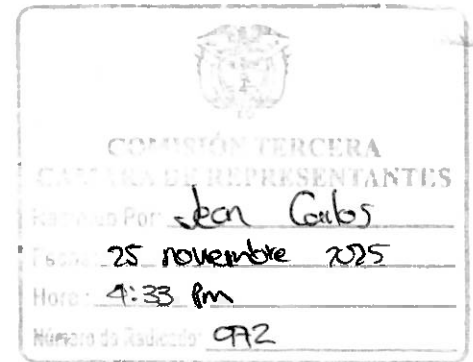 COMISIÓN TERCERA
CAMARA DE REPRESENTANTES
Recibido Por: Jean Carlos
Fecha: 25 noviembre 2025
Hora: 4:33 Pm
Número de Radicado: 972